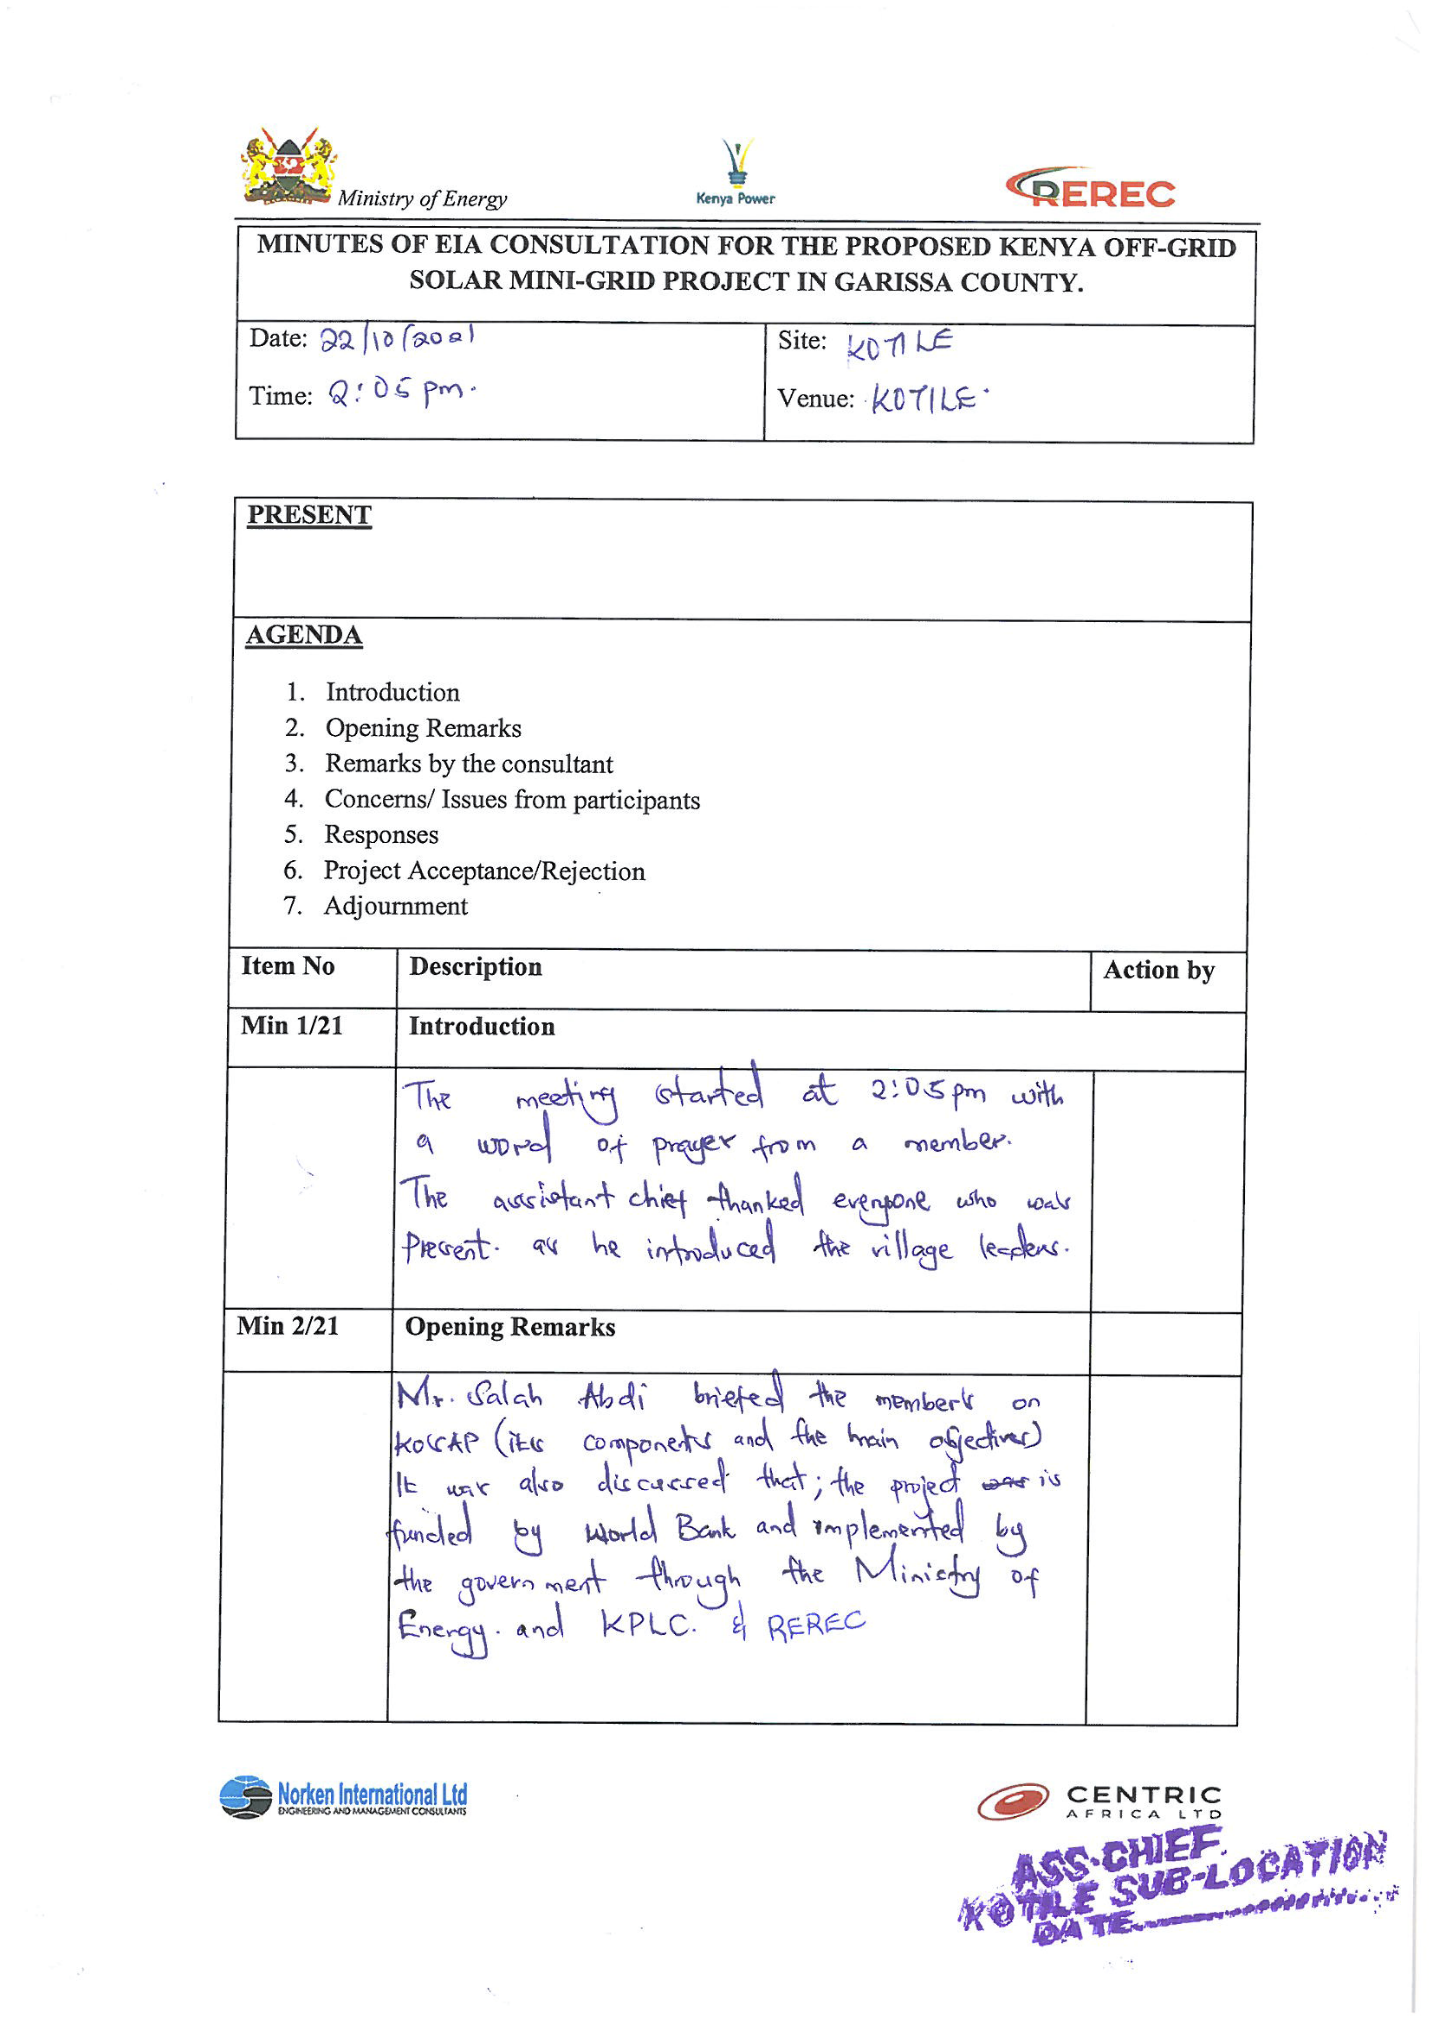 Ministry of Energy
Kenya Power
REREC
MINUTES OF EIA CONSULTATION FOR THE PROPOSED KENYA OFF-GRID
SOLAR MINI-GRID PROJECT IN GARISSA COUNTY.
Date: 22/10/2021
Site: KOTILE
Time: 2:05 pm.
Venue: KOTILE.
PRESENT
AGENDA
1. Introduction
2. Opening Remarks
3. Remarks by the consultant
4. Concerns/ Issues from participants
5. Responses
6. Project Acceptance/Rejection
7. Adjournment
Item No Description Action by
Min 1/21 Introduction
The meeting started at 2:05pm with
a word of prayer from a member.
The assistant chief thanked everyone who was
Present. as he introduced the village leaders.
Min 2/21 Opening Remarks
Mr. Salah Abdi briefed the members on
KOSAP (its components and the main objectives)
It was also discussed that; the project was is
funded by World Bank and implemented by
the government through the Ministry of
Energy. and KPLC. & REREC
Norken International Ltd
ENGINEERING AND MANAGEMENT CONSULTANTS
CENTRIC
AFRICA LTD
ASS-CHIEF.
KOTILE SUB-LOCATION
DATE